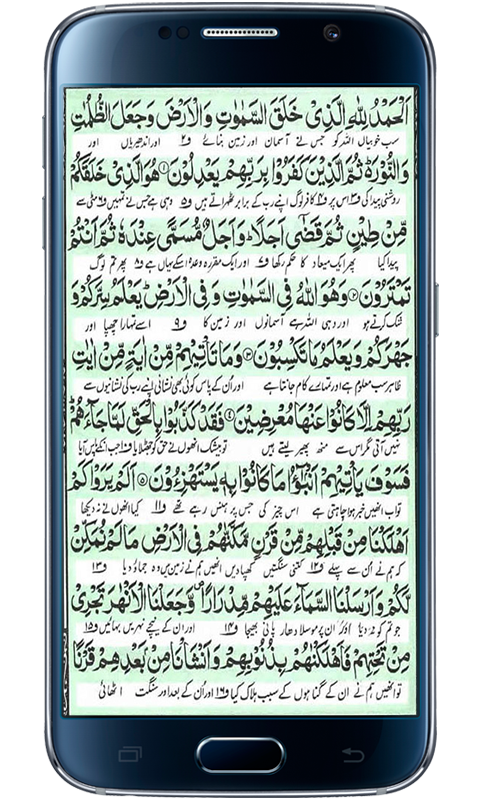 اَلْحَمْدُ لِلّٰهِ الَّذِیْ خَلَقَ السَّمٰوٰتِ وَ الْاَرْضَ وَ جَعَلَ الظُّلُمٰتِ
سب خوبیاں اللہ کو جس نے آسمان اور زمین بنائے ف۲ اور اندھیریاں اور
وَ النُّوْرَ ثُمَّ الَّذِیْنَ كَفَرُوْا بِرَبِّهِمْ یَعْدِلُوْنَ ۱ هُوَ الَّذِیْ خَلَقَكُمْ
روشنی پیدا کی ف۳ اس پر ف۴ کافر لوگ اپنے رب کے برابر ٹھہراتے ہیں ف۵ وہی ہے جس نے تمہیں ف۶ مٹی سے
مِّنْ طِیْنٍ ثُمَّ قَضٰۤى اَجَلًا وَ اَجَلٌ مُّسَمًّى عِنْدَهٗ ثُمَّ اَنْتُمْ
پیدا کیا پھر ایک میعاد کا حکم رکھا ف۷ اور ایک مقررہ وعدہ اس کے یہاں ہے ف۸ پھر تم لوگ
تَمْتَرُوْنَ ۲ وَ هُوَ اللّٰهُ فِی السَّمٰوٰتِ وَ فِی الْاَرْضِ یَعْلَمُ سِرَّكُمْ وَ
شک کرتے ہو اور وہی اللہ ہے آسمانوں اور زمین کا ف۹ اسے تمہارا چھپا اور
جَهْرَكُمْ وَ یَعْلَمُ مَا تَكْسِبُوْنَ ۳ وَ مَا تَاْتِیْهِمْ مِّنْ اٰیَةٍ مِّنْ اٰیٰتِ
ظاہر سب معلوم ہے اور تمہارے کام جانتا ہے اور ان کے پاس کوئی بھی نشانی اپنے رب کی نشانیوں سے
رَبِّهِمْ اِلَّا كَانُوْا عَنْهَا مُعْرِضِیْنَ ۴ فَقَدْ كَذَّبُوْا بِالْحَقِّ لَمَّا جَآءَهُمْ
نہیں آتی مگر اس سے منھ پھیر لیتے ہیں تو بیشک انھوں نے حق کو جھٹلایا ف۱۰ جب انکے پاس آیا
فَسَوْفَ یَاْتِیْهِمْ اَنْۢبٰٓؤُا مَا كَانُوْا بِهٖ یَسْتَهْزِءُوْنَ ۵ اَلَمْ یَرَوْا كَمْ
تو اب انھیں خبر ہوا چاہتی ہے اس چیز کی جس پر ہنس رہے تھے ف۱۱ کیا انھوں نے نہ دیکھا
اَهْلَكْنَا مِنْ قَبْلِهِمْ مِّنْ قَرْنٍ مَّكَّنّٰهُمْ فِی الْاَرْضِ مَا لَمْ نُمَكِّنْ
کہ ہم نے ان سے پہلے ف۱۲ کتنی سنگتیں کھپا دیں انھیں ہم نے زمین میں وہ جماؤ دیا ف۱۳
لَّكُمْ وَ اَرْسَلْنَا السَّمَآءَ عَلَیْهِمْ مِّدْرَارًا وَّ جَعَلْنَا الْاَنْهٰرَ تَجْرِیْ
جو تم کو نہ دیا اور ان پر موسلا دھار پانی بھیجا ف۱۴ اور ان کے نیچے نہریں بہائیں ف۱۵
مِنْ تَحْتِهِمْ فَاَهْلَكْنٰهُمْ بِذُنُوْبِهِمْ وَ اَنْشَاْنَا مِنْۢ بَعْدِهِمْ قَرْنًا
تو انھیں ہم نے ان کے گناہوں کے سبب ہلاک کیا ف۱۶ اور ان کے بعد اور سنگت اٹھائی